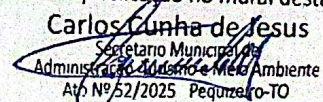 no mural desta
Carlos Cunha de Jesus
Secretario Municipal de
Administração Turismo e Meio Ambiente
Ato Nº 52/2025 Pequizeiro-TO